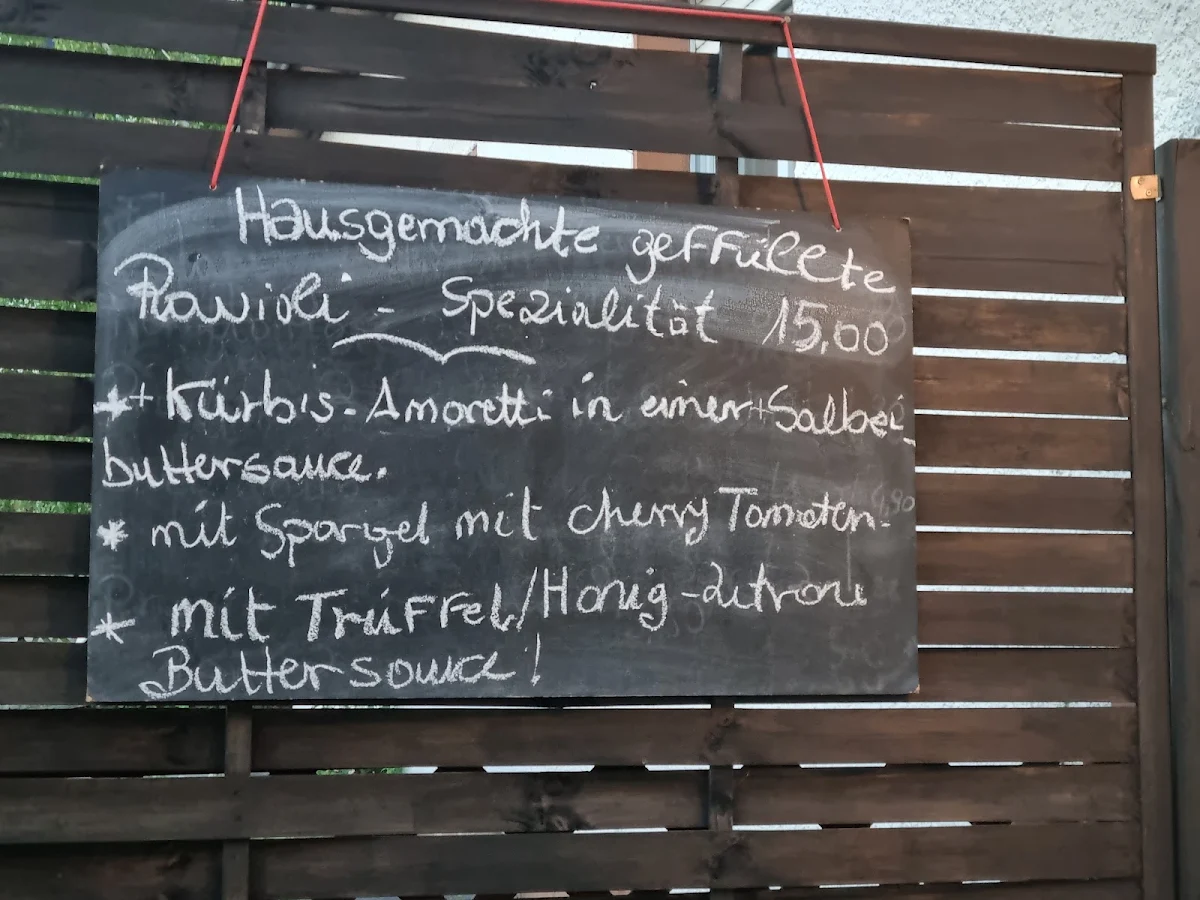 Hausgemachte geffüllte
Ravioli - Spezialität 15,00
*+ Kürbis-Amoretti in einer + Salbei-
buttersauce.
* mit Spargel mit cherry Tomaten-
* mit Trüffel/Honig-Zitrone
Buttersauce!